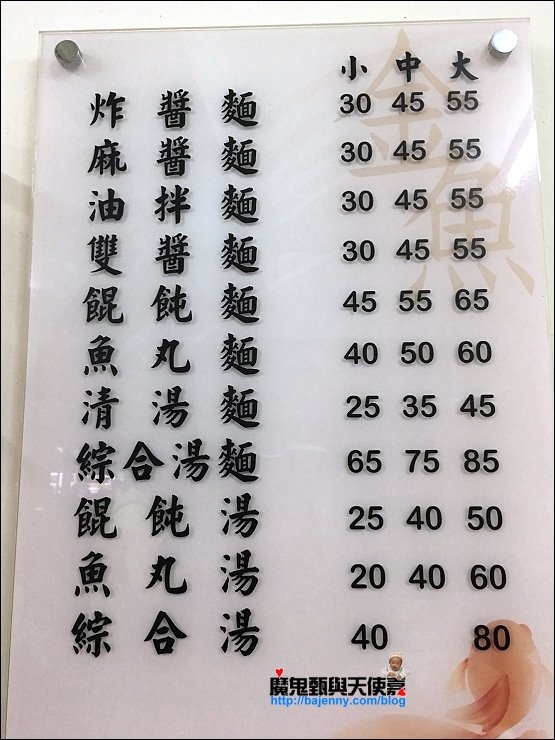 小 中 大
炸醬麵 30 45 55
麻醬麵 30 45 55
油拌麵 30 45 55
雙醬麵 30 45 55
餛飩麵 45 55 65
魚丸麵 40 50 60
清湯麵 25 35 45
綜合湯麵 65 75 85
餛飩湯 25 40 50
魚丸湯 20 40 60
綜合湯 40 80
金魚
魔鬼甄與天使嘉
http://bajenny.com/blog